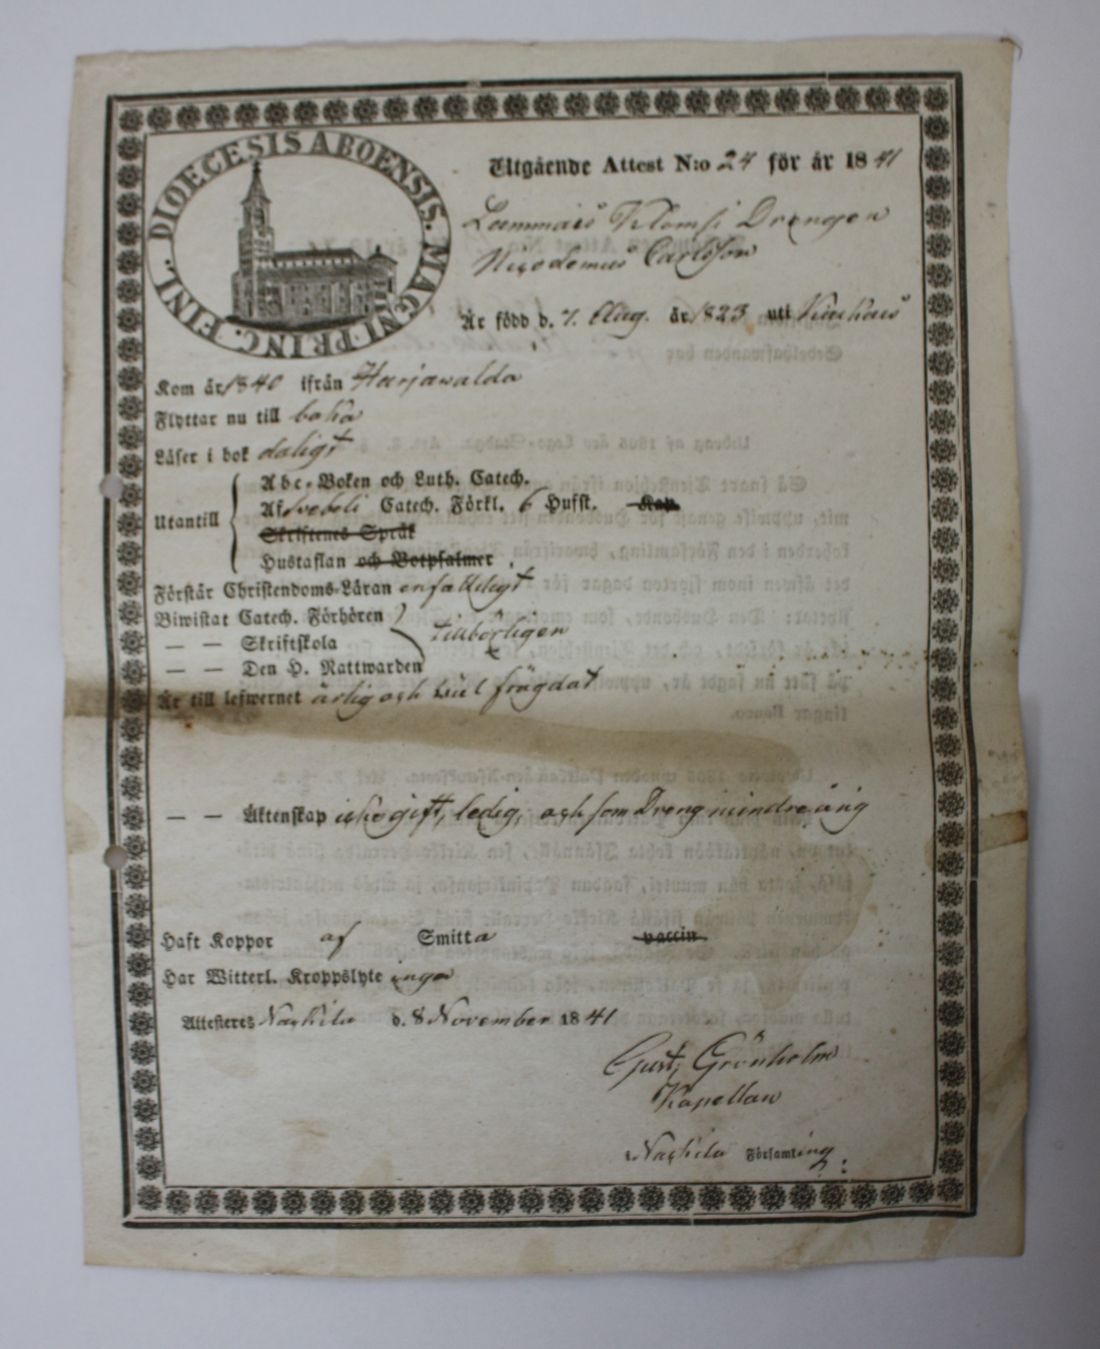 DIOECESIS ABOENSIS. MAGNI PRINC. FINL.
Utgående Attest N:o 24 för år 1841
Drengen
Nicodemus Carlsson
Är född d. 7. Aug. år 1823 uti
Kom år 1840 ifrån Harjawalda
Flyttar nu till baka
Läser i bok daligt
Abc-Boken och Luth. Catech.
Utantill
Af Svebeli Catech. Förkl. 6 Hufst.
Skriftenes Språk
Hustaflan och Botpsalmer.
Förstår Christendoms-Läran enfalldigt
Biwistat Catech. Förhören
— — Skriftskola tillbörligen
— — Den H. Nattwarden
Är till lefwernet ärlig och väl frägdat
— — Äktenskap icke gift, ledig, och som Dreng mindre årig
Haft Koppor af Smitta vaccin
Har Witterl. Kroppslyte inga
Attesteres Nackila d. 8 November 1841
Gust. Grönholm
Kapellan
i Nackila Församling